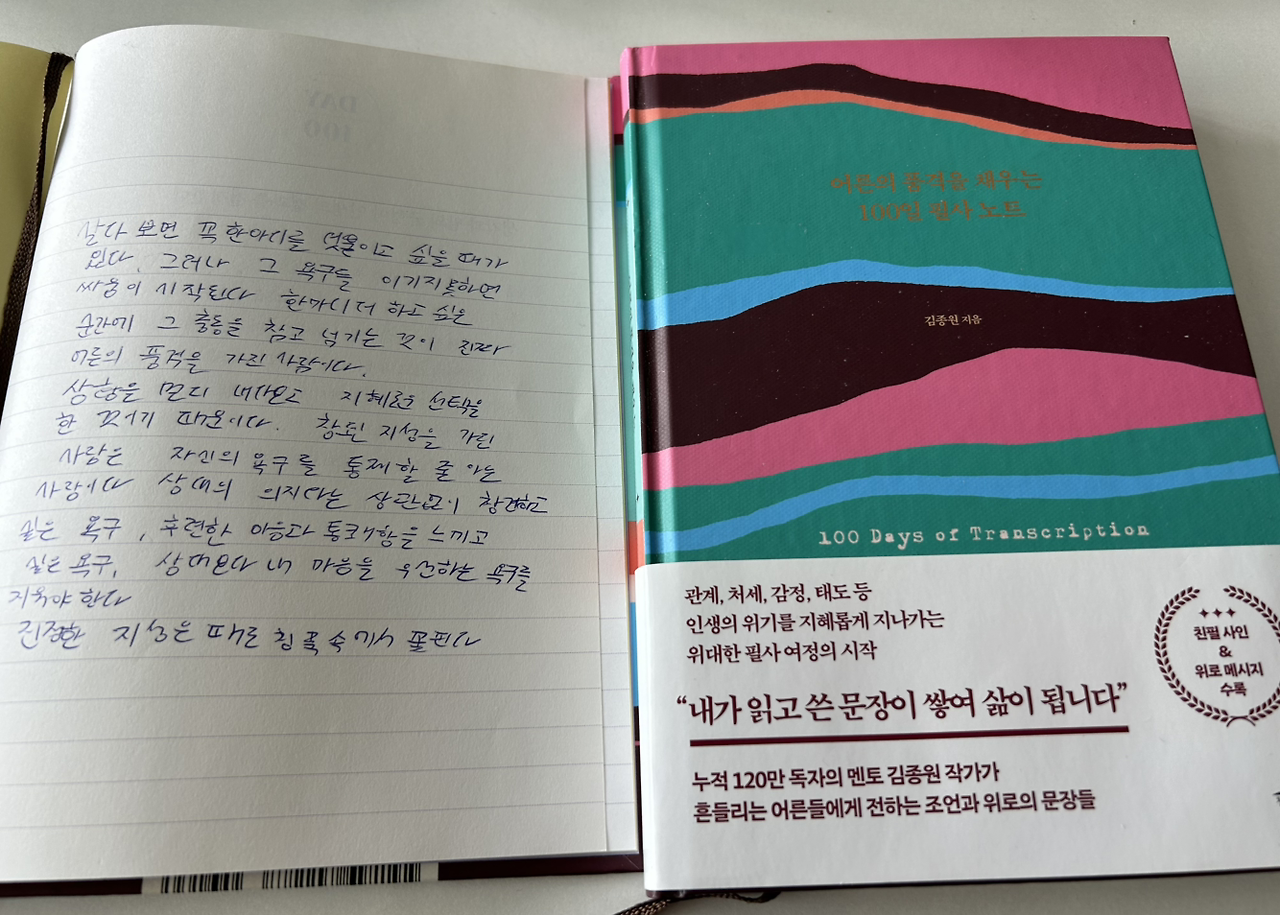 DAY
100
살다 보면 꼭 한마디를 덧붙이고 싶을 때가
있다. 그러나 그 욕구를 이기지 못하면
싸움이 시작된다 한마디 더 하고 싶은
순간에 그 충동을 참고 넘기는 것이 진짜
어른의 품격을 가진 사람이다.
상황을 멀리 내다보고 지혜로운 선택을
한 것이기 때문이다. 참된 지성을 가진
사람은 자신의 욕구를 통제할 줄 아는
사람이다 상대의 의지와는 상관없이 참견하고
싶은 욕구, 후련한 마음과 통쾌함을 느끼고
싶은 욕구, 상대보다 내 마음을 우선하는 욕구를
지워야 한다
진정한 지성은 때로 침묵 속에서 꽃핀다
어른의 품격을 채우는
100일 필사 노트
김종원 지음
100 Days of Transcription
관계, 처세, 감정, 태도 등
인생의 위기를 지혜롭게 지나가는
위대한 필사 여정의 시작
친필 사인
&
위로 메시지
수록
“내가 읽고 쓴 문장이 쌓여 삶이 됩니다”
누적 120만 독자의 멘토 김종원 작가가
흔들리는 어른들에게 전하는 조언과 위로의 문장들